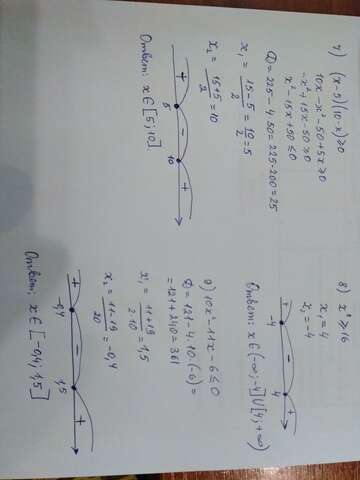 7) (x-5)(10-x)≥0
10x-x²-50+5x≥0
-x²+15x-50≥0
x²-15x+50≤0
D=225-4·50=225-200=25
x₁=(15-5)/2=10/2=5
x₂=(15+5)/2=10
+ - +
5 10
Ответ: x∈[5;10]
8) x²≥16
x₁=4
x₂=-4
+ - +
-4 4
Ответ: x∈(-∞;-4]∪[4;+∞)
9) 10x²-11x-6≤0
D=121-4·10·(-6)=
=121+240=361
x₁=(11+19)/(2·10)=1,5
x₂=(11-19)/20=-0,4
+ - +
-0,4 1,5
Ответ: x∈[-0,4;1,5]